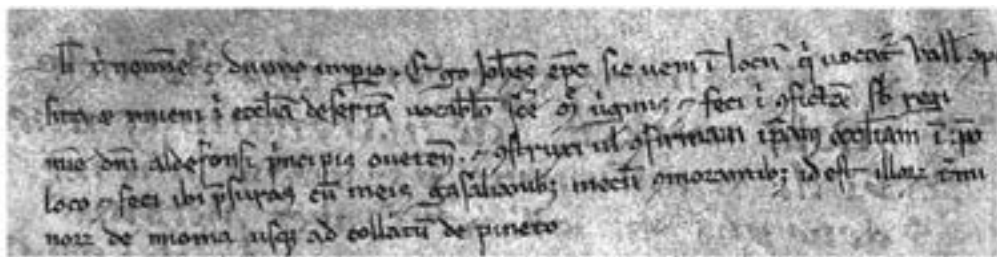 b x̄ nomine ⁊ diuino imperio. Ego Joh̄es ep̄c sic ueni ī locū q̇ uocat̄ Vall ꝯpo
sita ⁊ inueni ī eccl̄ia desertā uocablo sc̄e uirginis ⁊ feci ī sb̄ regi
mīe dn̄i aldefonsi p̄ncipis oueten̄. ⁊ ꝯstruxi ul̄ ꝯfirmaui ip̄am eccl̄iam ī ip̄o
loco ⁊ feci ibi p̄suras cū meis gasalianib; mecū ꝯmorantib; id est illoꝝ t̄mi
noꝝ de mioma usq; ad collatū de pineto